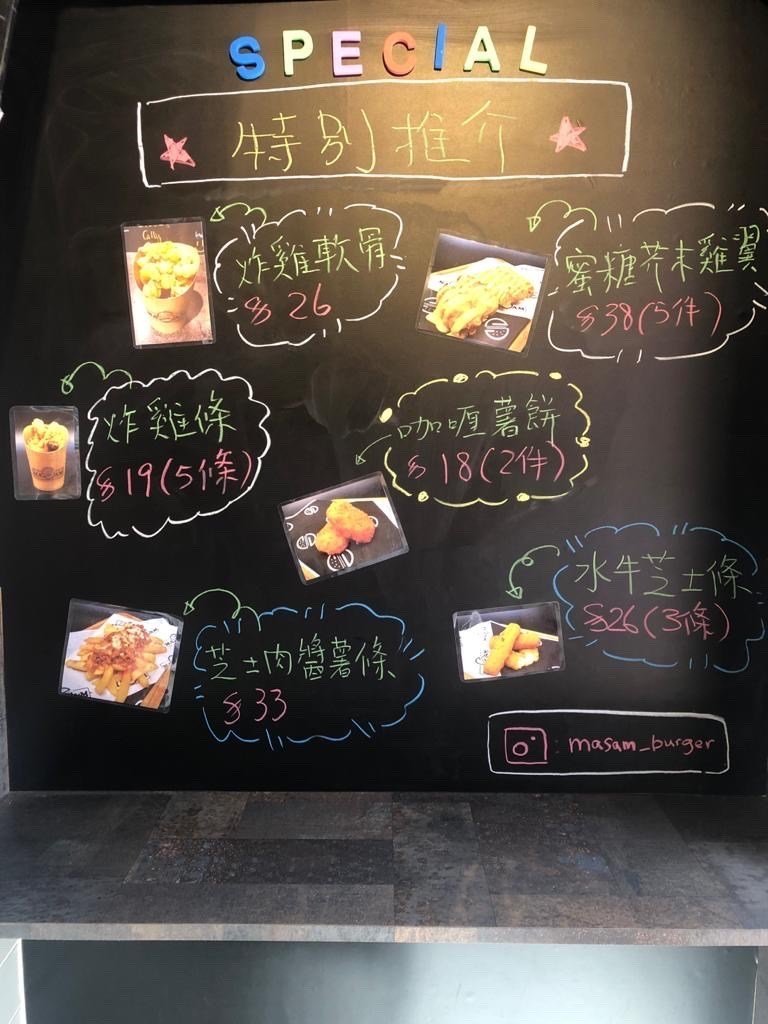 SPECIAL
特別推介
炸雞軟骨
$26
蜜糖芥末雞翼
$38(5件)
炸雞條
$19(5條)
咖喱薯餅
$18(2件)
水牛芝士條
$26(3條)
芝士肉醬薯條
$33
: masam_burger